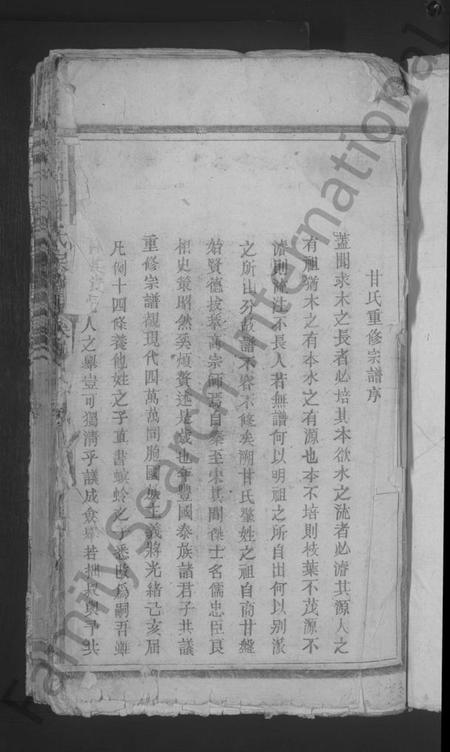 甘氏重修宗譜序
蓋聞求木之長者必培其本欲水之流者必濬其源人之
有祖猶木之有本水之有源也本不培則枝葉不茂源不
濬則流注不長人若無譜何以明祖之所自出何以別派
之所由分故譜不容不修矣溯甘氏肇姓之祖自商甘盤
始賢德拔萃高宗師焉自秦至宋其間傑士名儒忠臣良
相史策昭然奚煩贅述是歲也年豐國泰族諸君子共議
重修宗譜觀現代四萬萬同胞國族主義將光緒己亥屆
凡例十四條養他姓之子直書螟蛉之子悉改為嗣吾雖
人之舉豈可獨清乎議成僉舉若
FamilySearch International